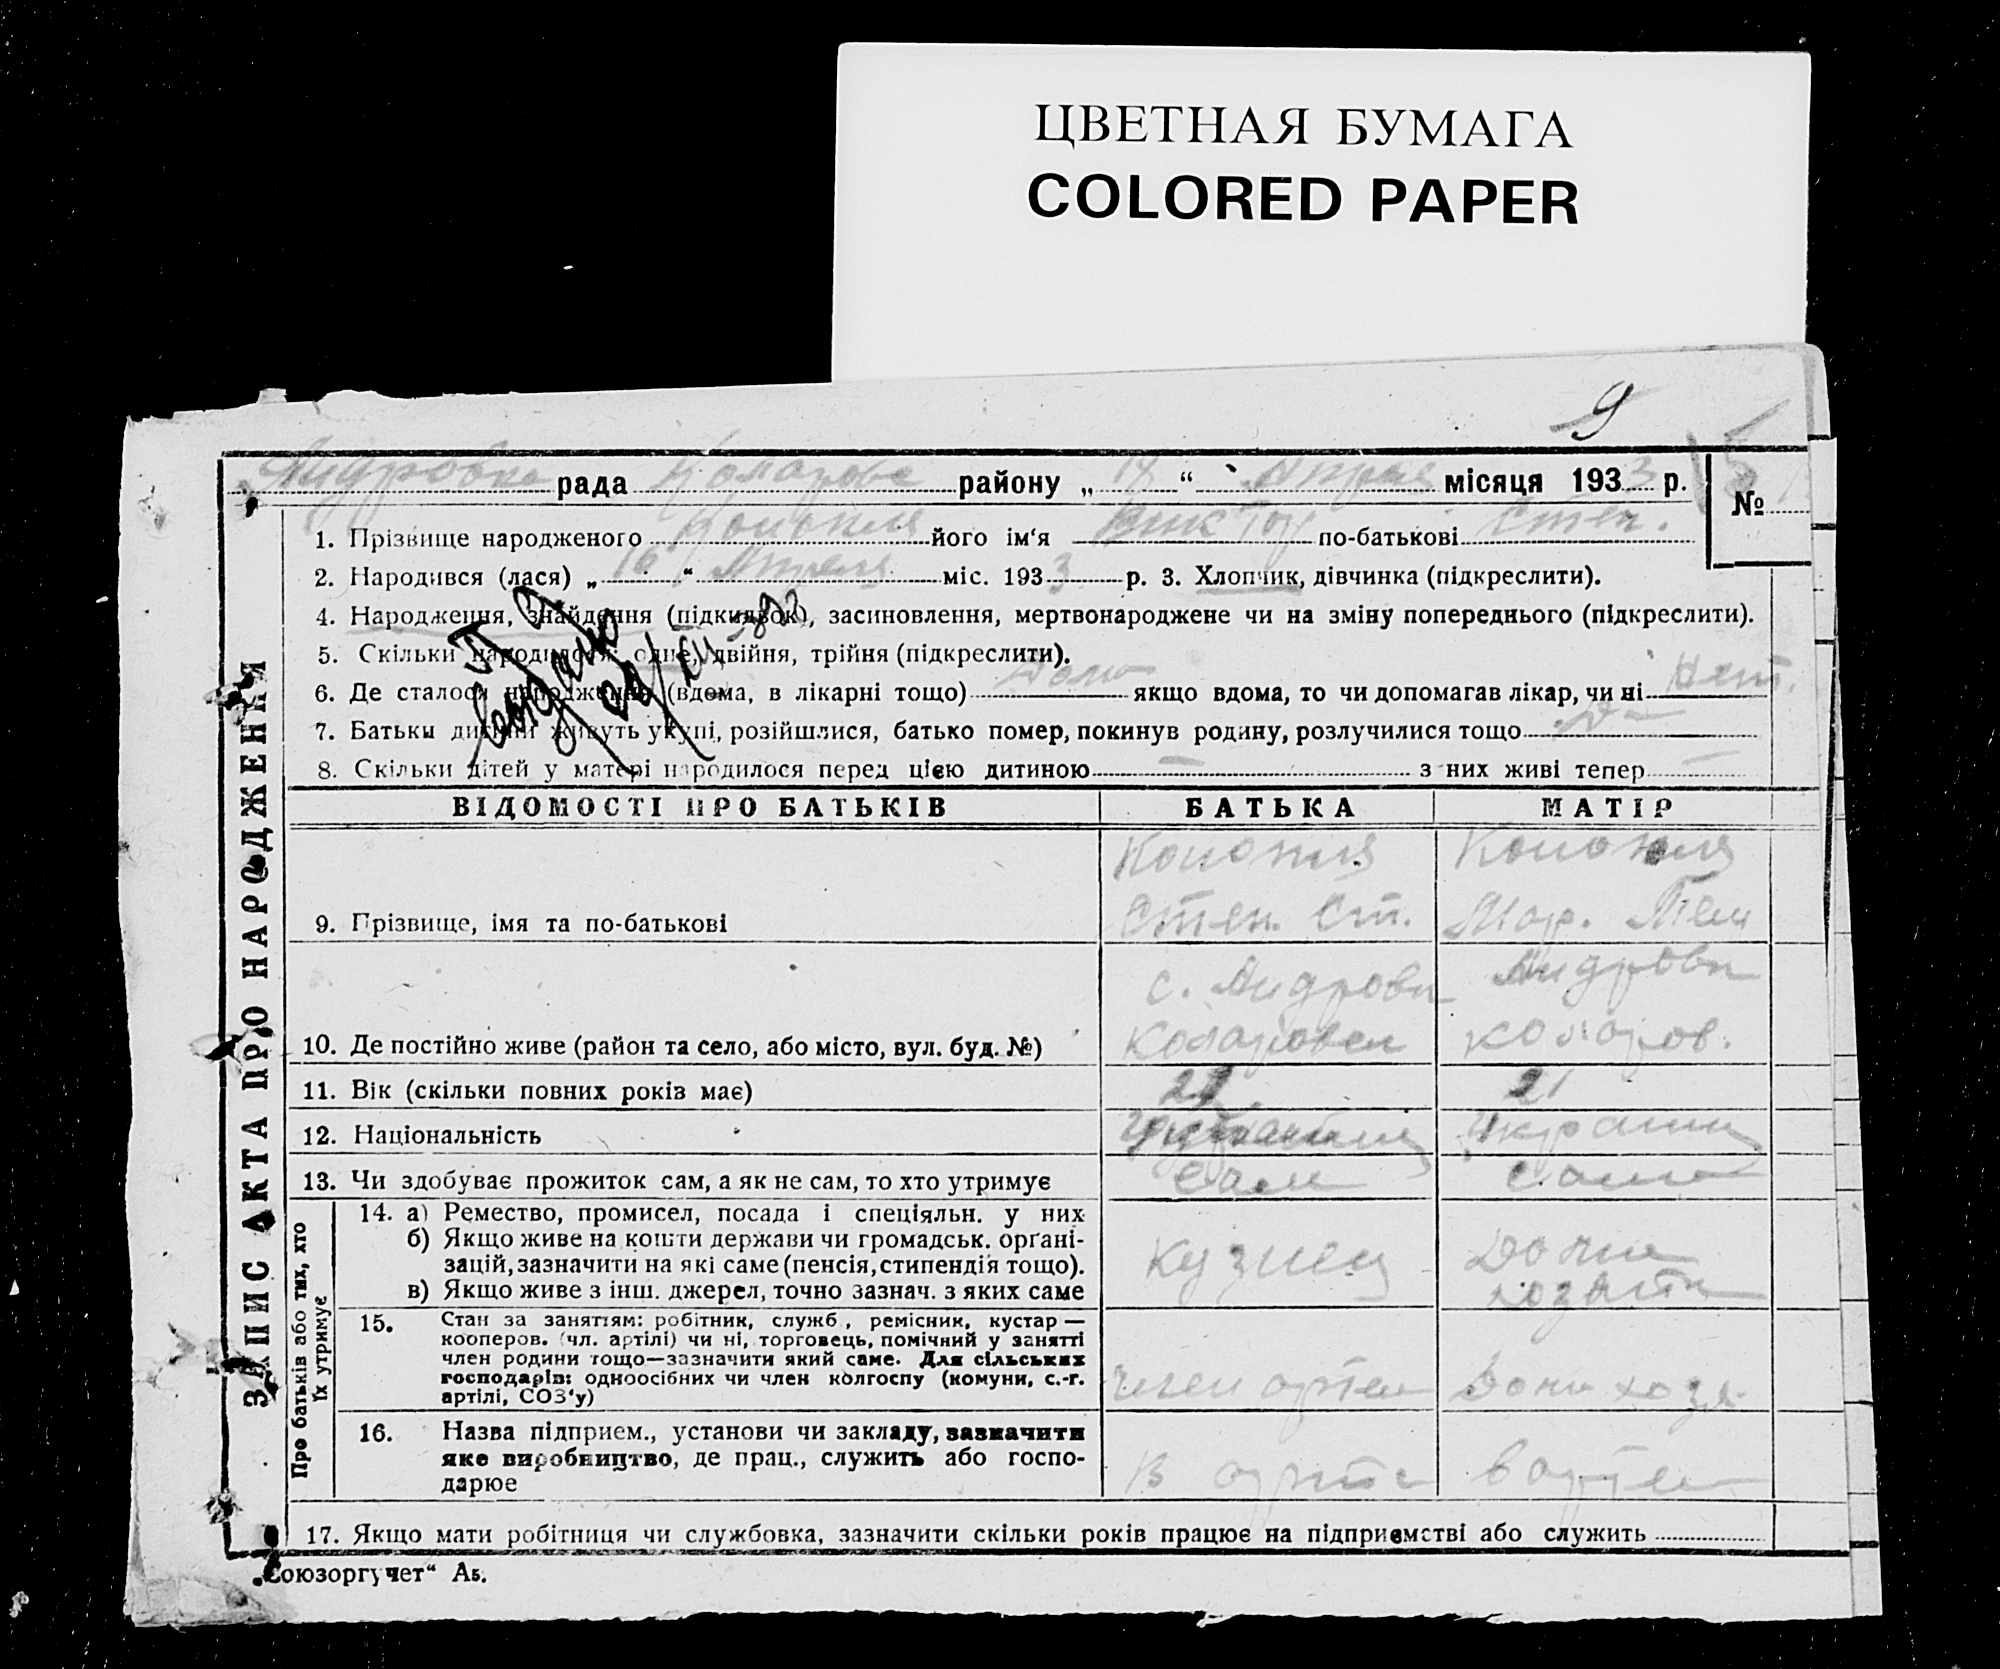 ЦВЕТНАЯ БУМАГА
COLORED PAPER
9
Андровка рада района району „ “ місяця 193 3 р. №
1. Прізвище народженого Конопля його ім‘я Виктор по-батькові Степ.
2. Народився (лася) „ 16 “ Апреля міс. 193 3 р. 3. Хлопчик, дівчинка (підкреслити).
4. Народження, знайдення (підкидьок), засиновлення, мертвонароджене чи на зміну попереднього (підкреслити).
5. Скільки народилося: одне, двійня, трійня (підкреслити).
6. Де сталося народження (вдома, в лікарні тощо) Дома якщо вдома, то чи допомагав лікар, чи ні Нет.
7. Батьки дитини живуть укупі, розійшлися, батько помер, покинув родину, розлучилися тощо Да
8. Скільки дітей у матері народилося перед цією дитиною — з них живі тепер —
ВІДОМОСТІ ПРО БАТЬКІВ БАТЬКА МАТІР
Конопля Конопля
9. Прізвище, імя та по-батькові Степ. Ст. Мар.
с. Андровк Андровк
10. Де постійно живе (район та село, або місто, вул. буд. №) Коларовск Коларов.
11. Вік (скільки повних років має) 21
12. Національність Украинц
13. Чи здобуває прожиток сам, а як не сам, то хто утримує Сам Сама
14. а) Ремество, промисел, посада і спеціяльн. у них
б) Якщо живе на кошти держави чи громадськ. органі-
зацій, зазначити на які саме (пенсія, стипендія тощо). Кузнец Дома
в) Якщо живе з інш. джерел, точно зазнач. з яких саме хозяйк
15. Стан за заняттям: робітник, служб., ремісник, кустар —
кооперов. (чл. артілі) чи ні, торговець, помічний у занятті
член родини тощо—зазначити який саме. Для сільських
господарів: одноосібних чи член колгоспу (комуни, с.-г. член артел Дома хозя
артілі, СОЗ‘у)
16. Назва підприєм., установи чи закладу, зазначити
яке виробництво, де прац., служить або госпо- В арте в арте
дарює
17. Якщо мати робітниця чи службовка, зазначити скільки років працює на підприємстві або служить
„Союзоргучет“ Аб.
ЗАПИС АКТА ПРО НАРОДЖЕННЯ
Про батьків або тих, хто
їх утримує